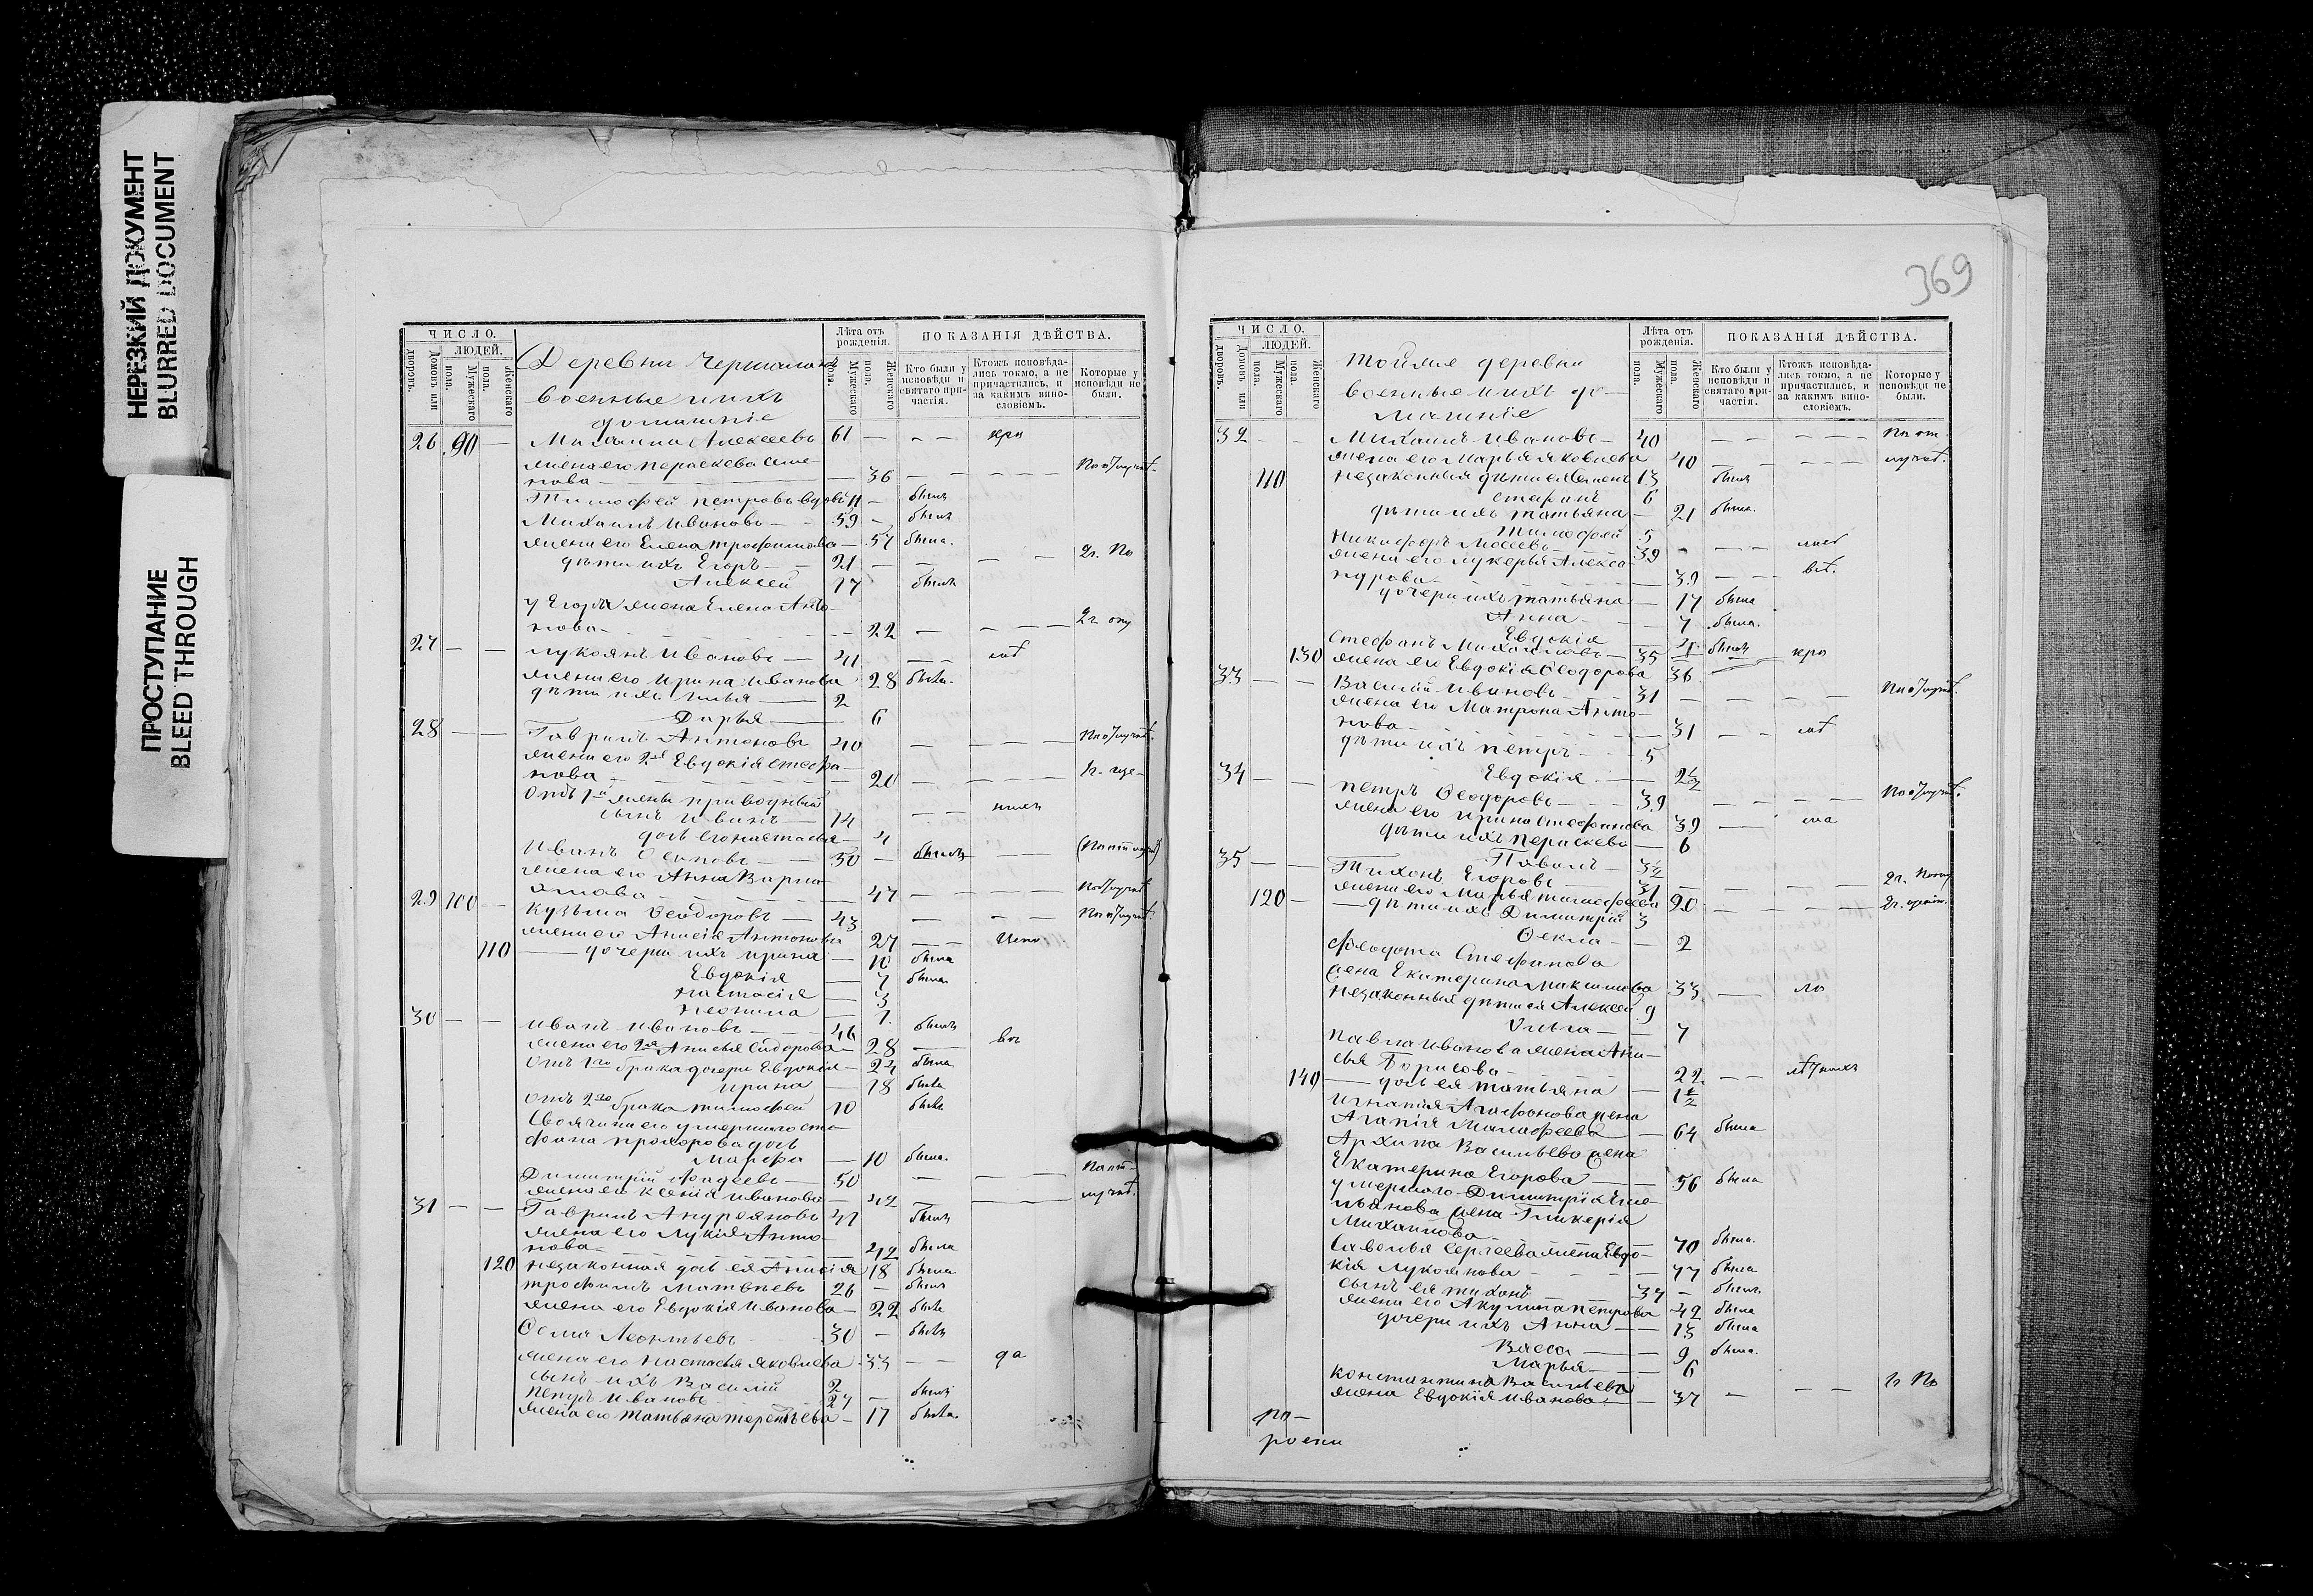 НЕРЕЗКИЙ ДОКУМЕНТ
BLURRED DOCUMENT
ПРОСТУПАНИЕ
BLEED THROUGH
ЧИСЛО.
ЛЮДЕЙ.
Домовъ или дворовъ.
Мужескаго пола.
Женскаго пола.
Деревни
военные и ихъ
домашніе
Лѣта отъ рожденія.
Мужескаго пола.
Женскаго пола.
ПОКАЗАНІЯ ДѢЙСТВА.
Кто были у исповѣди и святаго причастія.
Ктожъ исповѣдались токмо, а не причастились, и за какимъ винословіемъ.
Которые у исповѣди не были.
26 90 — Алексеевъ 61 — — —
жена его Пераскева Симе-
нова — 36 — — —
Тимофей Петровъ вдовъ — былъ
Михаилъ Ивановъ — 59 — былъ
жена его Елена Трофимова — 57 была.
дѣти ихъ Егоръ — 21 — — — 2г. По
Алексей 17 былъ
у Егора жена Елена Анто-
нова — 22 — — —
27 — — Лукоянъ Ивановъ — 41 — —
жена его Ирина Иванова 28 была.
дѣти ихъ Илья — 2
Дарья — 6
28 — — Гаврилъ Антоновъ 40 — — —
жена его 2я Евдокія Стефа-
нова — 20 — — —
Отъ 1й жены приводный
сынъ Иванъ — 14 — —
дочь его Настасья — 4
Иванъ Осиповъ — 50 — былъ —
жена его Анна Варла-
амова 47 — — —
29 100 — Кузьма Ѳеодоровъ — 43 — — —
жена его Анисія Антонова 27 — —
110 — дочери ихъ Ирина — 10 была
Евдокія — 7 была.
Настасія — 3
Неонила — 1.
30 — — Иванъ Ивановъ — 46 былъ
жена его 2я Анисья Сидорова 28 —
Отъ 1го брака дочери Евдокія — 24 была
Ирина — 18 была
Отъ 2го брака Тимофей 10 былъ.
Своячина его умершаго Сте-
фана Прохорова дочь
Марфа — 10 была.
Димитрій Фадеевъ — 50 — —
жена его Ксенія Иванова — 42 —
31 — — Гаврилъ Андреяновъ 47 былъ
жена его Лукія Анто-
нова — 42 была
120 незаконная дочь ея Анисія 18 была
Трофимъ Матвеевъ 26 — былъ
жена его Евдокія Иванова — 22 была
Осипъ Леонтьевъ 30 — былъ
жена его Настасья Яковлева 33 — —
сынъ ихъ Василій 2
Петръ Ивановъ 27 — былъ
жена его Татьяна Терентьева — 17 была.
369
ЧИСЛО.
ЛЮДЕЙ.
Домовъ или дворовъ.
Мужескаго пола.
Женскаго пола.
Тойже деревни
военные и ихъ до-
машніе
Лѣта отъ рожденія.
Мужескаго пола.
Женскаго пола.
ПОКАЗАНІЯ ДѢЙСТВА.
Кто были у исповѣди и святаго причастія.
Ктожъ исповѣдались токмо, а не причастились, и за какимъ винословіемъ.
Которые у исповѣди не были.
32 — — Михаилъ Ивановъ — 40 — — —
жена его Марья Яковлева 40 — — —
110 незаконныя дѣти ея Семенъ 13 былъ
Стефанъ 6
дѣти ихъ Татьяна — 21 была.
Тимофей 5
Никифоръ Мосеевъ — 39 — — —
жена его Лукерья Алекса-
ндрова — 39 — —
дочери ихъ Татьяна — 17 была
Анна — 7 была.
Евдокія
Стефанъ Михайловъ — 35 былъ
130 жена его Евдокія Ѳеодорова 36 —
33 — — Василій Ивановъ — 31 — — —
жена его Матрона Анто-
нова — 31 — —
дѣти ихъ Петръ — 5
Евдокія — 2½
34 — — Петръ Ѳеодоровъ — 39 — — —
жена его Ирина Стефанова 39 —
дѣти ихъ Пераскева — 6
Павелъ — 3½
35 — — Тихонъ Егоровъ 31 — — —
120 — жена его Марья Тимофеева 20 — — —
дѣти ихъ Димитрій 3
Ѳекла — 2
Федота Стефанова
жена Екатерина Максимова 33 —
незаконныя дѣти ея Алексей 9
Ольга — 7
Павла Иванова жена Ани-
сья Борисова — 22 — —
140 — дочь ея Татьяна — 1½
Игнатія Агафонова жена
Агапія Малафеева — 64 была
Архипа Васильева жена
Екатерина Егорова — 56 была
умершаго Димитрія Еме-
льянова жена Гликерія
Михайлова — 70 была.
Савелья Сергеева жена Евдо-
кія Лукоянова — 77 была
сынъ ея Тихонъ — 37 — былъ.
жена его Акулина Петрова 42 была
дочери ихъ Анна — 13 была
Васса — 9 была.
Марья — 6
Константина Васильева
жена Евдокія Иванова — 37 — — —